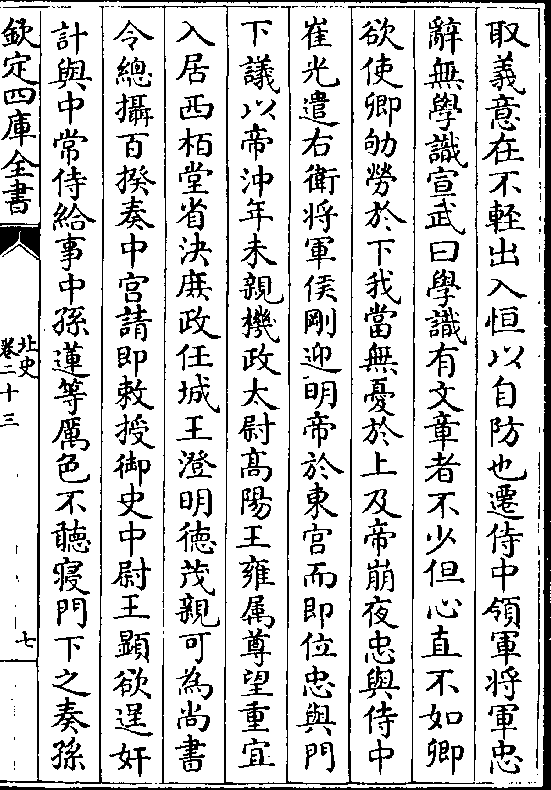 取義意在不輕出入恒以自防也遷侍中領軍将軍忠
辭無學識宣武曰學識有文章者不少但心直不如卿
欲使卿劬勞於下我當無憂於上及帝崩夜忠與侍中
崔光遣右衛将軍侯剛迎明帝於東宫而即位忠與門
下議以帝沖年未親機政太尉髙陽王雍属尊望重宜
入居西栢堂省決庶政任城王澄明德茂親可為尚書
令總攝百揆奏中宫請即敕授御史中尉王顯欲逞奸
計與中常侍給事中孫蓮等厲色不聽寢門下之奏孫
欽定四庫全書
北史
卷二十三
七